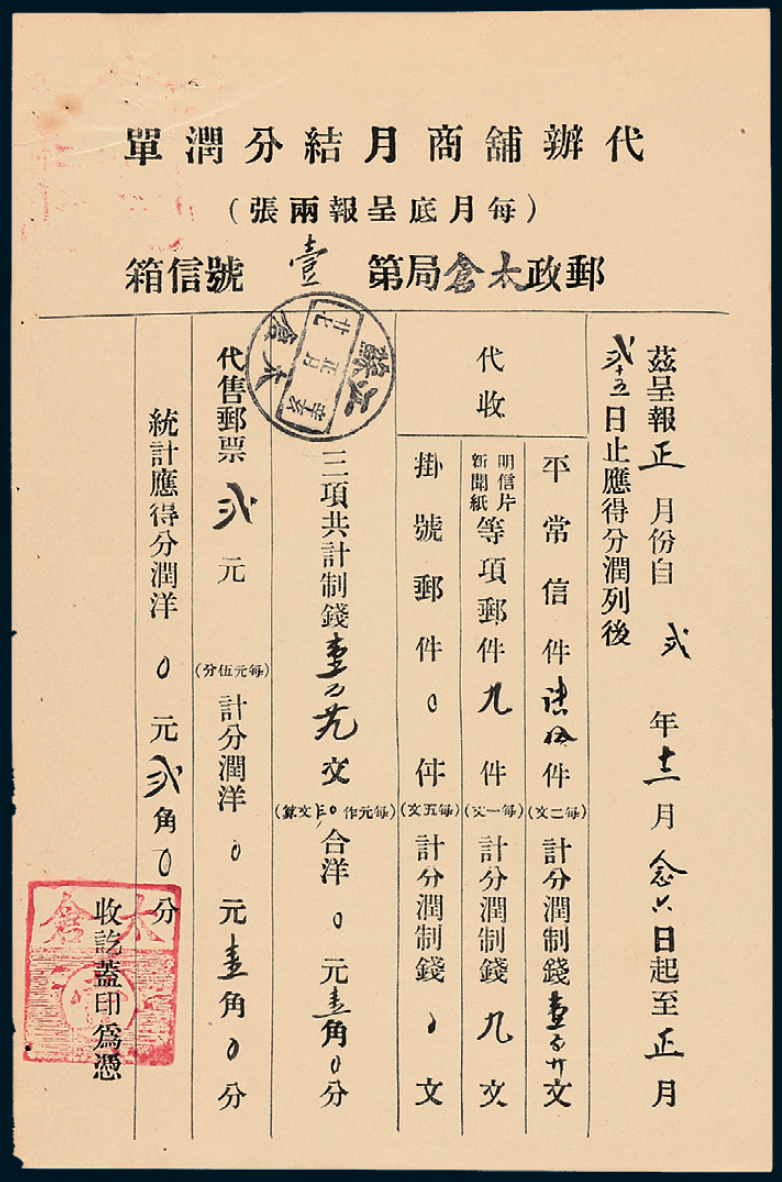 代辦舖商月結分潤單
(每月底呈報兩張)
郵政太倉局第壹號信箱
茲呈報正月份自弍年十二月念六日起至正月
弍十五日止應得分潤列後
代收
平常信件陸拾件(每二文)計分潤制錢壹百廿文
明信片新聞紙等項郵件九件(每一文)計分潤制錢九文
掛號郵件0件(每五文)計分潤制錢0文
三項共計制錢壹百廿九文(每元作 文算)合洋0元壹角0分
代售郵票弍元(每元伍分)計分潤洋0元壹角0分
統計應得分潤洋0元弍角0分
收訖蓋印爲憑
江蘇
辛亥
正月
廿七
太倉
太倉